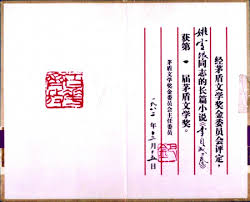 经茅盾文学奖金委员会评定，
姚雪垠同志的长篇小说《李自成》
获第一届茅盾文学奖。
茅盾文学奖金委员会主任委员
年十二月十五日